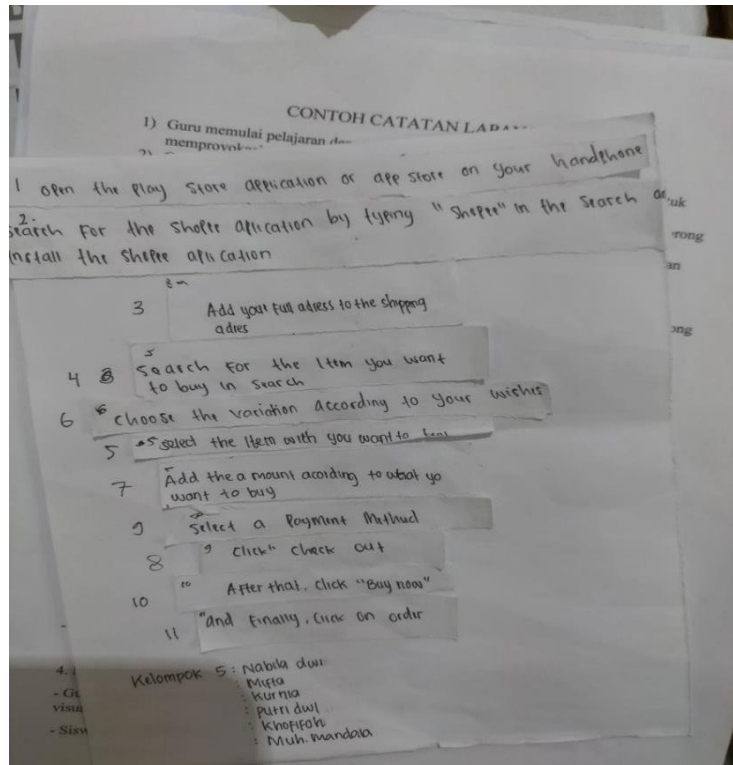 CONTOH CATATAN LAPA
1) Guru memulai pelajaran
memprovok
2)
1 open the play store application or app store on your handphone
2. search for the shopee aplication by typing "shopee" in the search or
install the shopee apli cation
uk
rong
an
ong
3 Add your full adress to the shipping
adres
4 8 5 search for the Item you want
to buy in search
6 6 choose the variation according to your wishes
5 5 select the Item with you want to
7 Add the a mount acording to what yo
want to buy
9 8 select a Payment Methud
8 9 click" check out
10 10 After that, click "Buy now"
11 "and Finally, Click on order
4.
- Gu
visua
- Sisw
Kelompok 5 : Nabila dwi
: Mifta
: Kurnia
: putri dwi
: Khofifah
: Muh. mandala